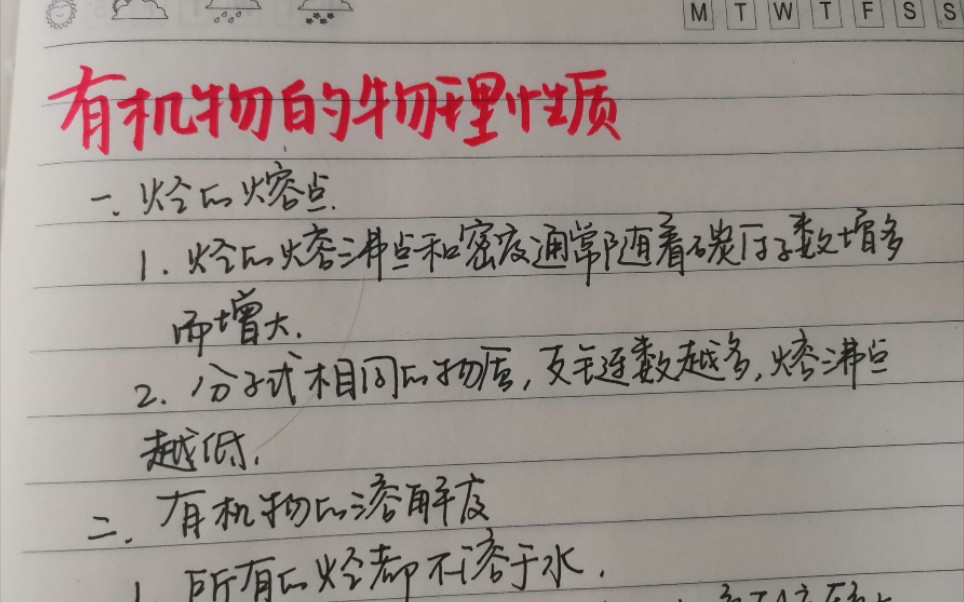 M T W T F S S
有机物的物理性质
一. 烃的熔点
1. 烃的熔沸点和密度通常随着碳原子数增多
而增大.
2. 分子式相同的物质, 支链数越多, 熔沸点
越低.
二. 有机物的溶解度
1. 所有的烃都不溶于水.